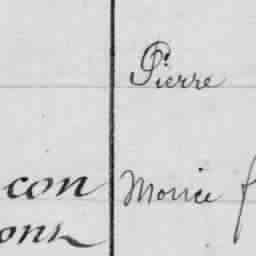 Pierre
con Morice f
ons